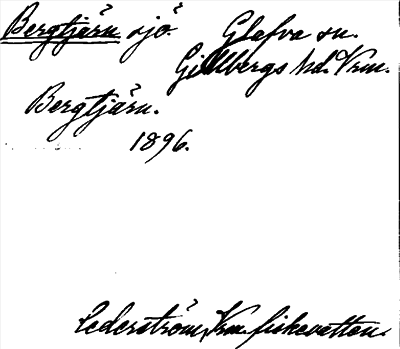 Bergtjärn sjö. Glafva sn.
Gillbergs hd. Vrm.
Bergtjärn.
1896.
Cederström, Vrm. fiskevatten.